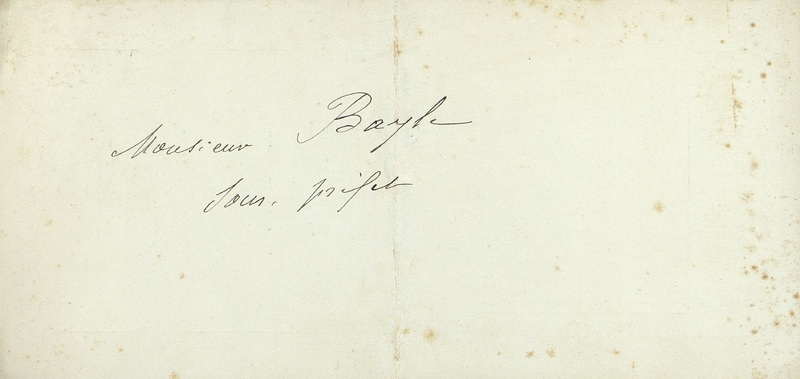 Monsieur Bayle
Sous-préfet